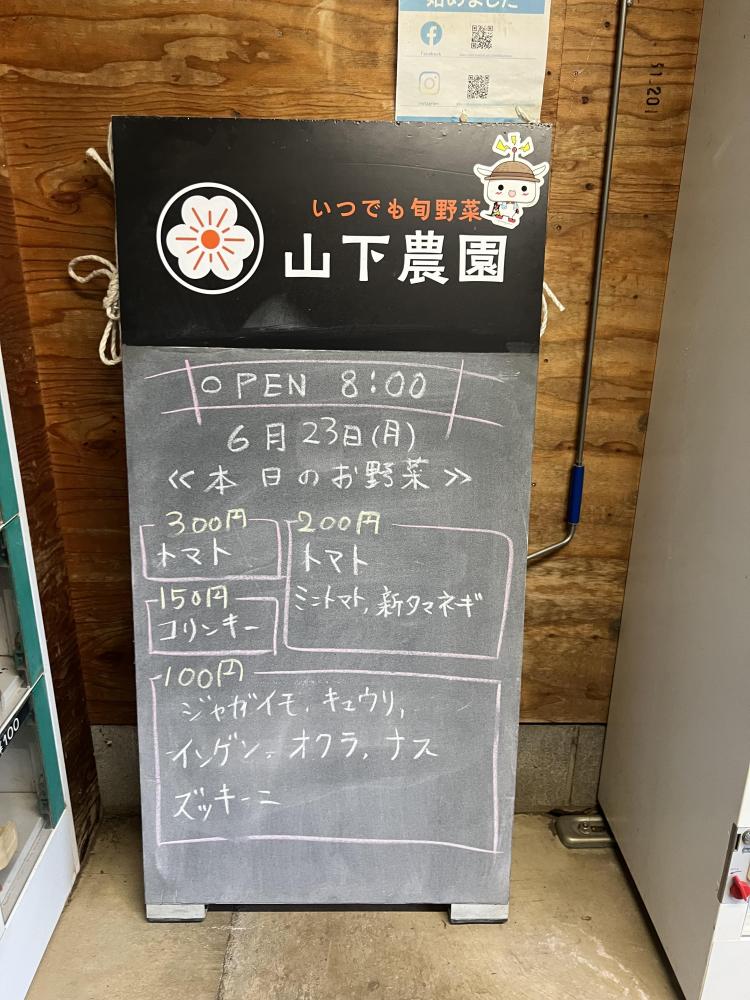 始めました
Facebook
Instagram
いつでも旬野菜
山下農園
OPEN 8:00
6月23日(月)
≪本日のお野菜≫
300円
トマト
200円
トマト
ミニトマト, 新タマネギ
150円
コリンキー
100円
ジャガイモ, キュウリ,
インゲン, オクラ, ナス
ズッキーニ
¥100